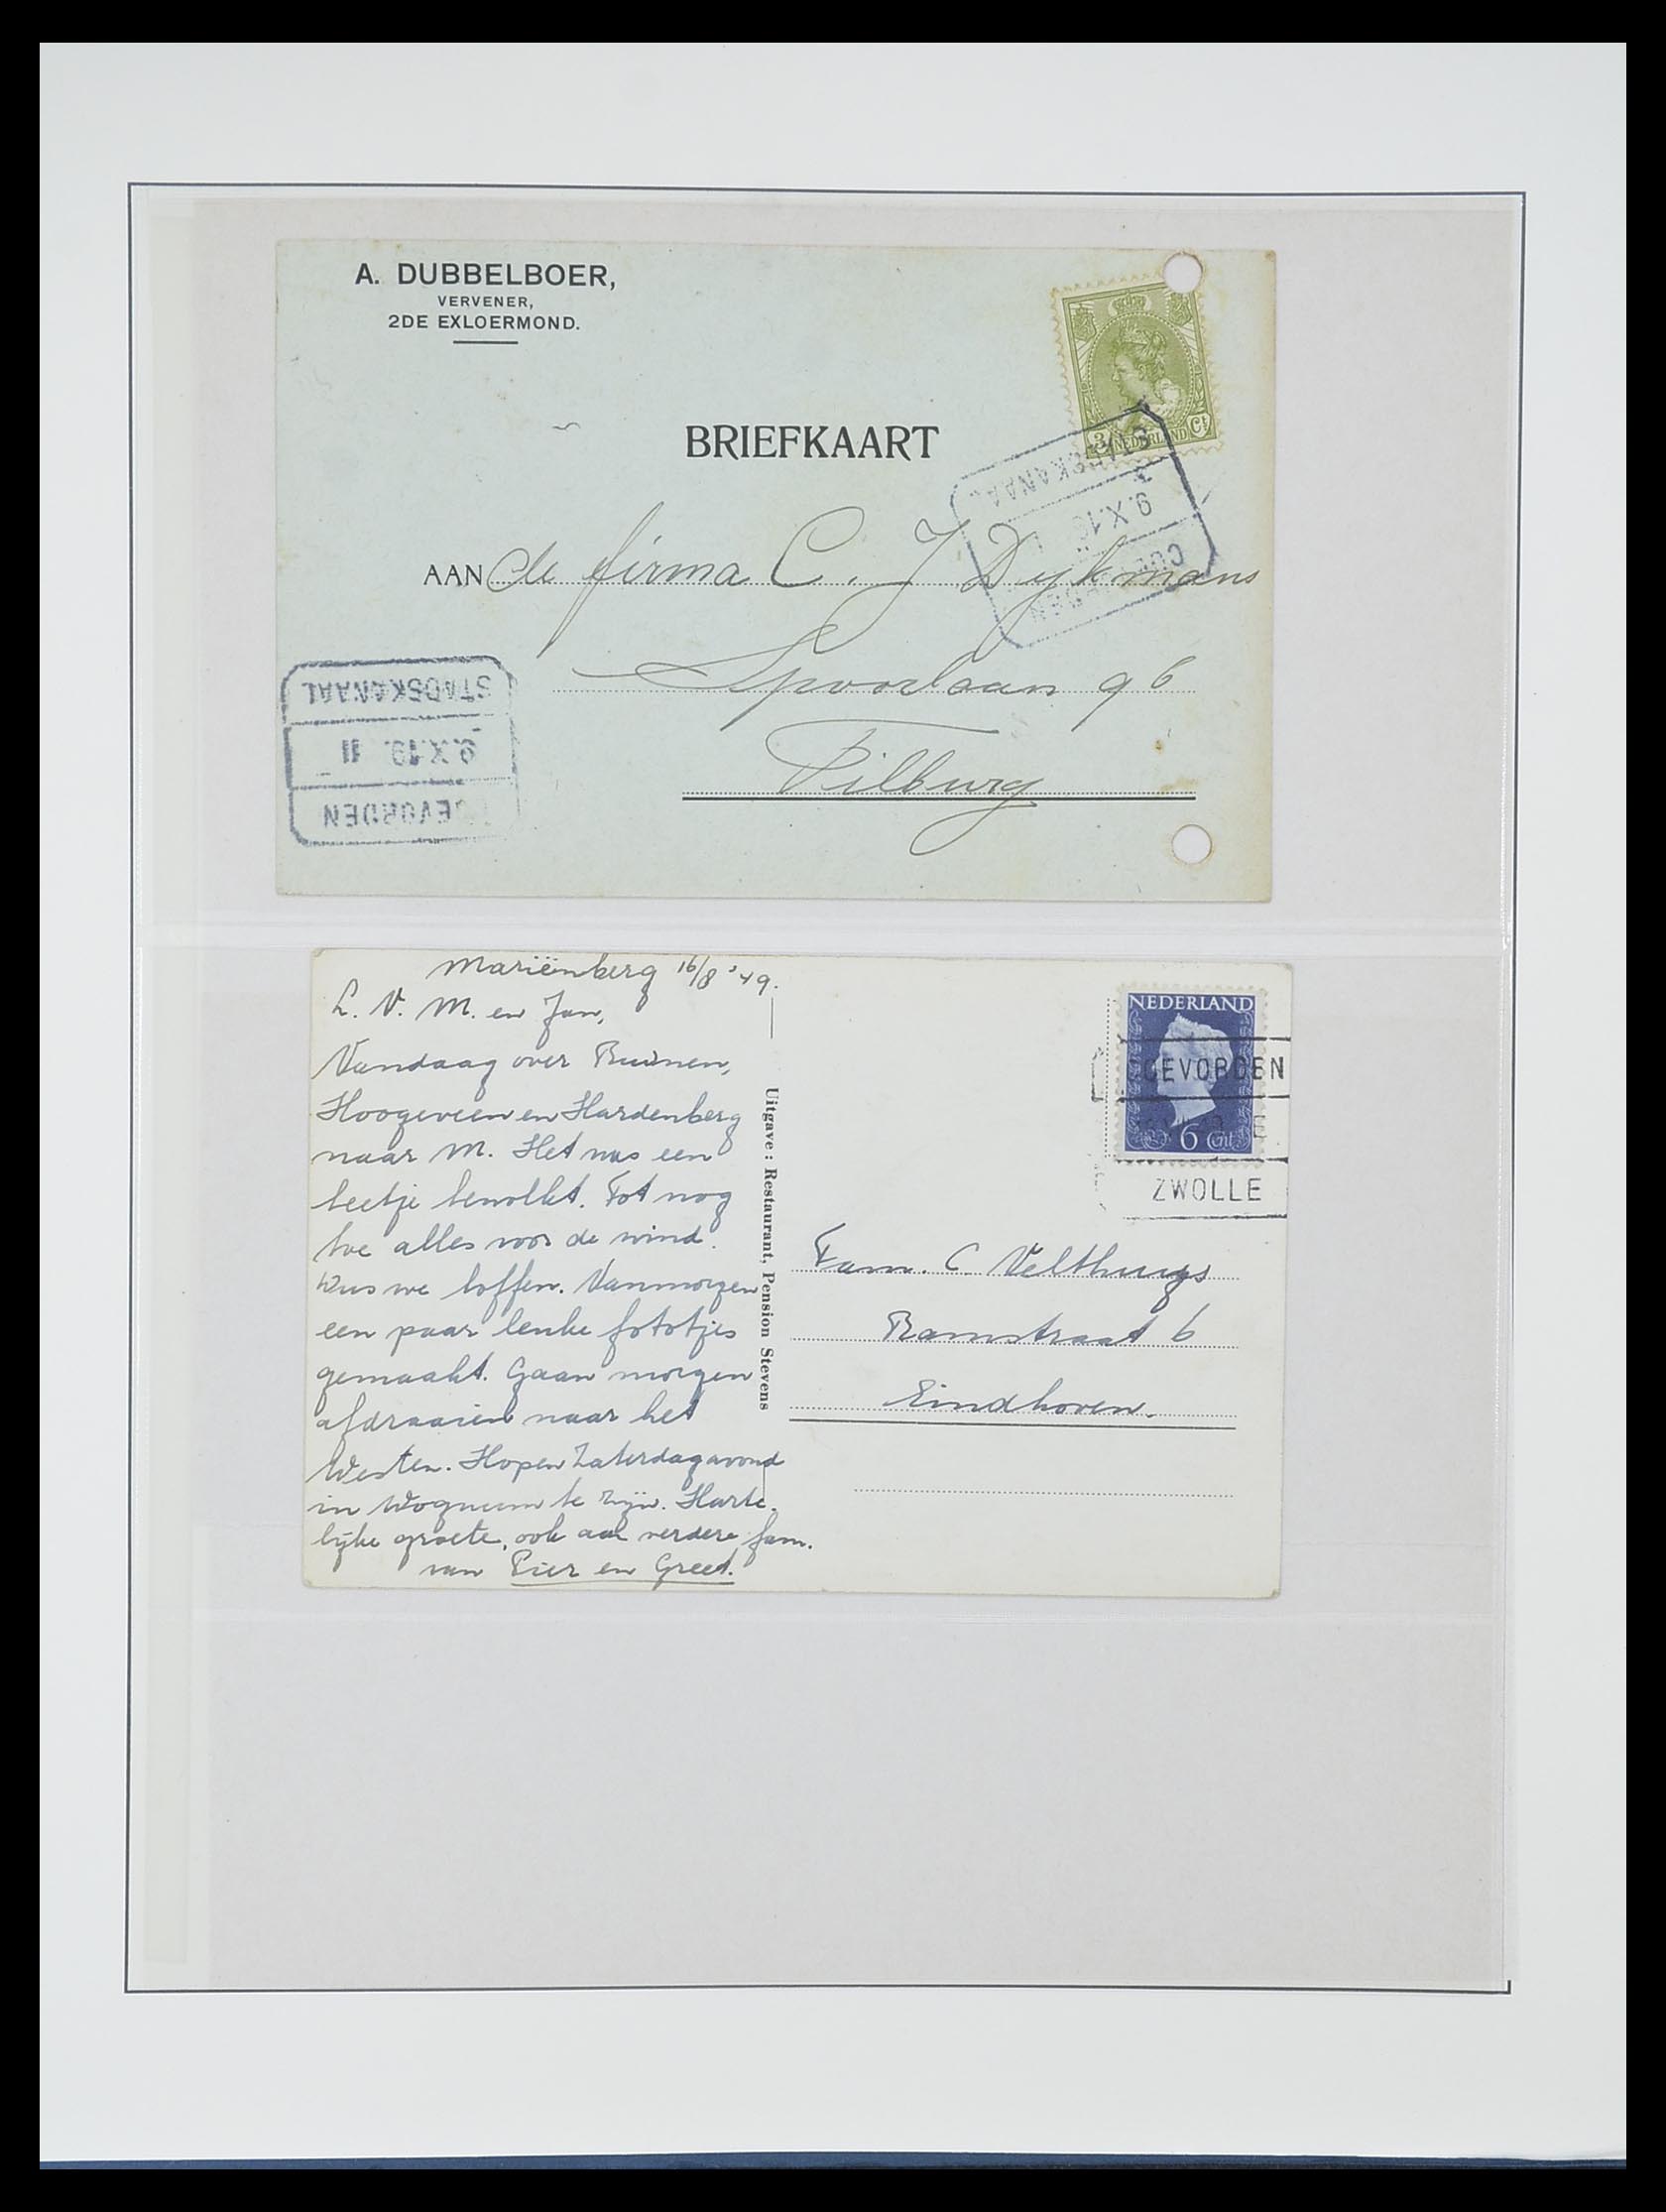 A. DUBBELBOER,
VERVENER,
2DE EXLOERMOND.
BRIEFKAART
3 NEDERLAND Ct
STADSKANAAL
9.X.19
COEVORDEN
AAN de firma C. J Dijkmans
Spoorlaan 96
Tilburg
STADSKANAAL
9.X.19. 11
OEVORDEN
Mariënberg 16/8 '49.
L. V. M. en Jan,
Vandaag over Buinen,
Hoogeveen en Hardenberg
naar M. Het was een
beetje bewolkt. Tot nog
toe alles voor de wind.
Wus we boffen. Vanmorgen
een paar leuke fototjes
gemaakt. Gaan morgen
afdraaien naar het
Westen. Hopen Zaterdagavond
in Wognum te zijn. Harte-
lijke groete, ook aan verdere fam.
van Pier en Greet.
Uitgave: Restaurant, Pension Stevens
NEDERLAND
6 Cnt
COEVORDEN
E
ZWOLLE
Fam. C. Velthuys
Ramstraat 6
Eindhoven.